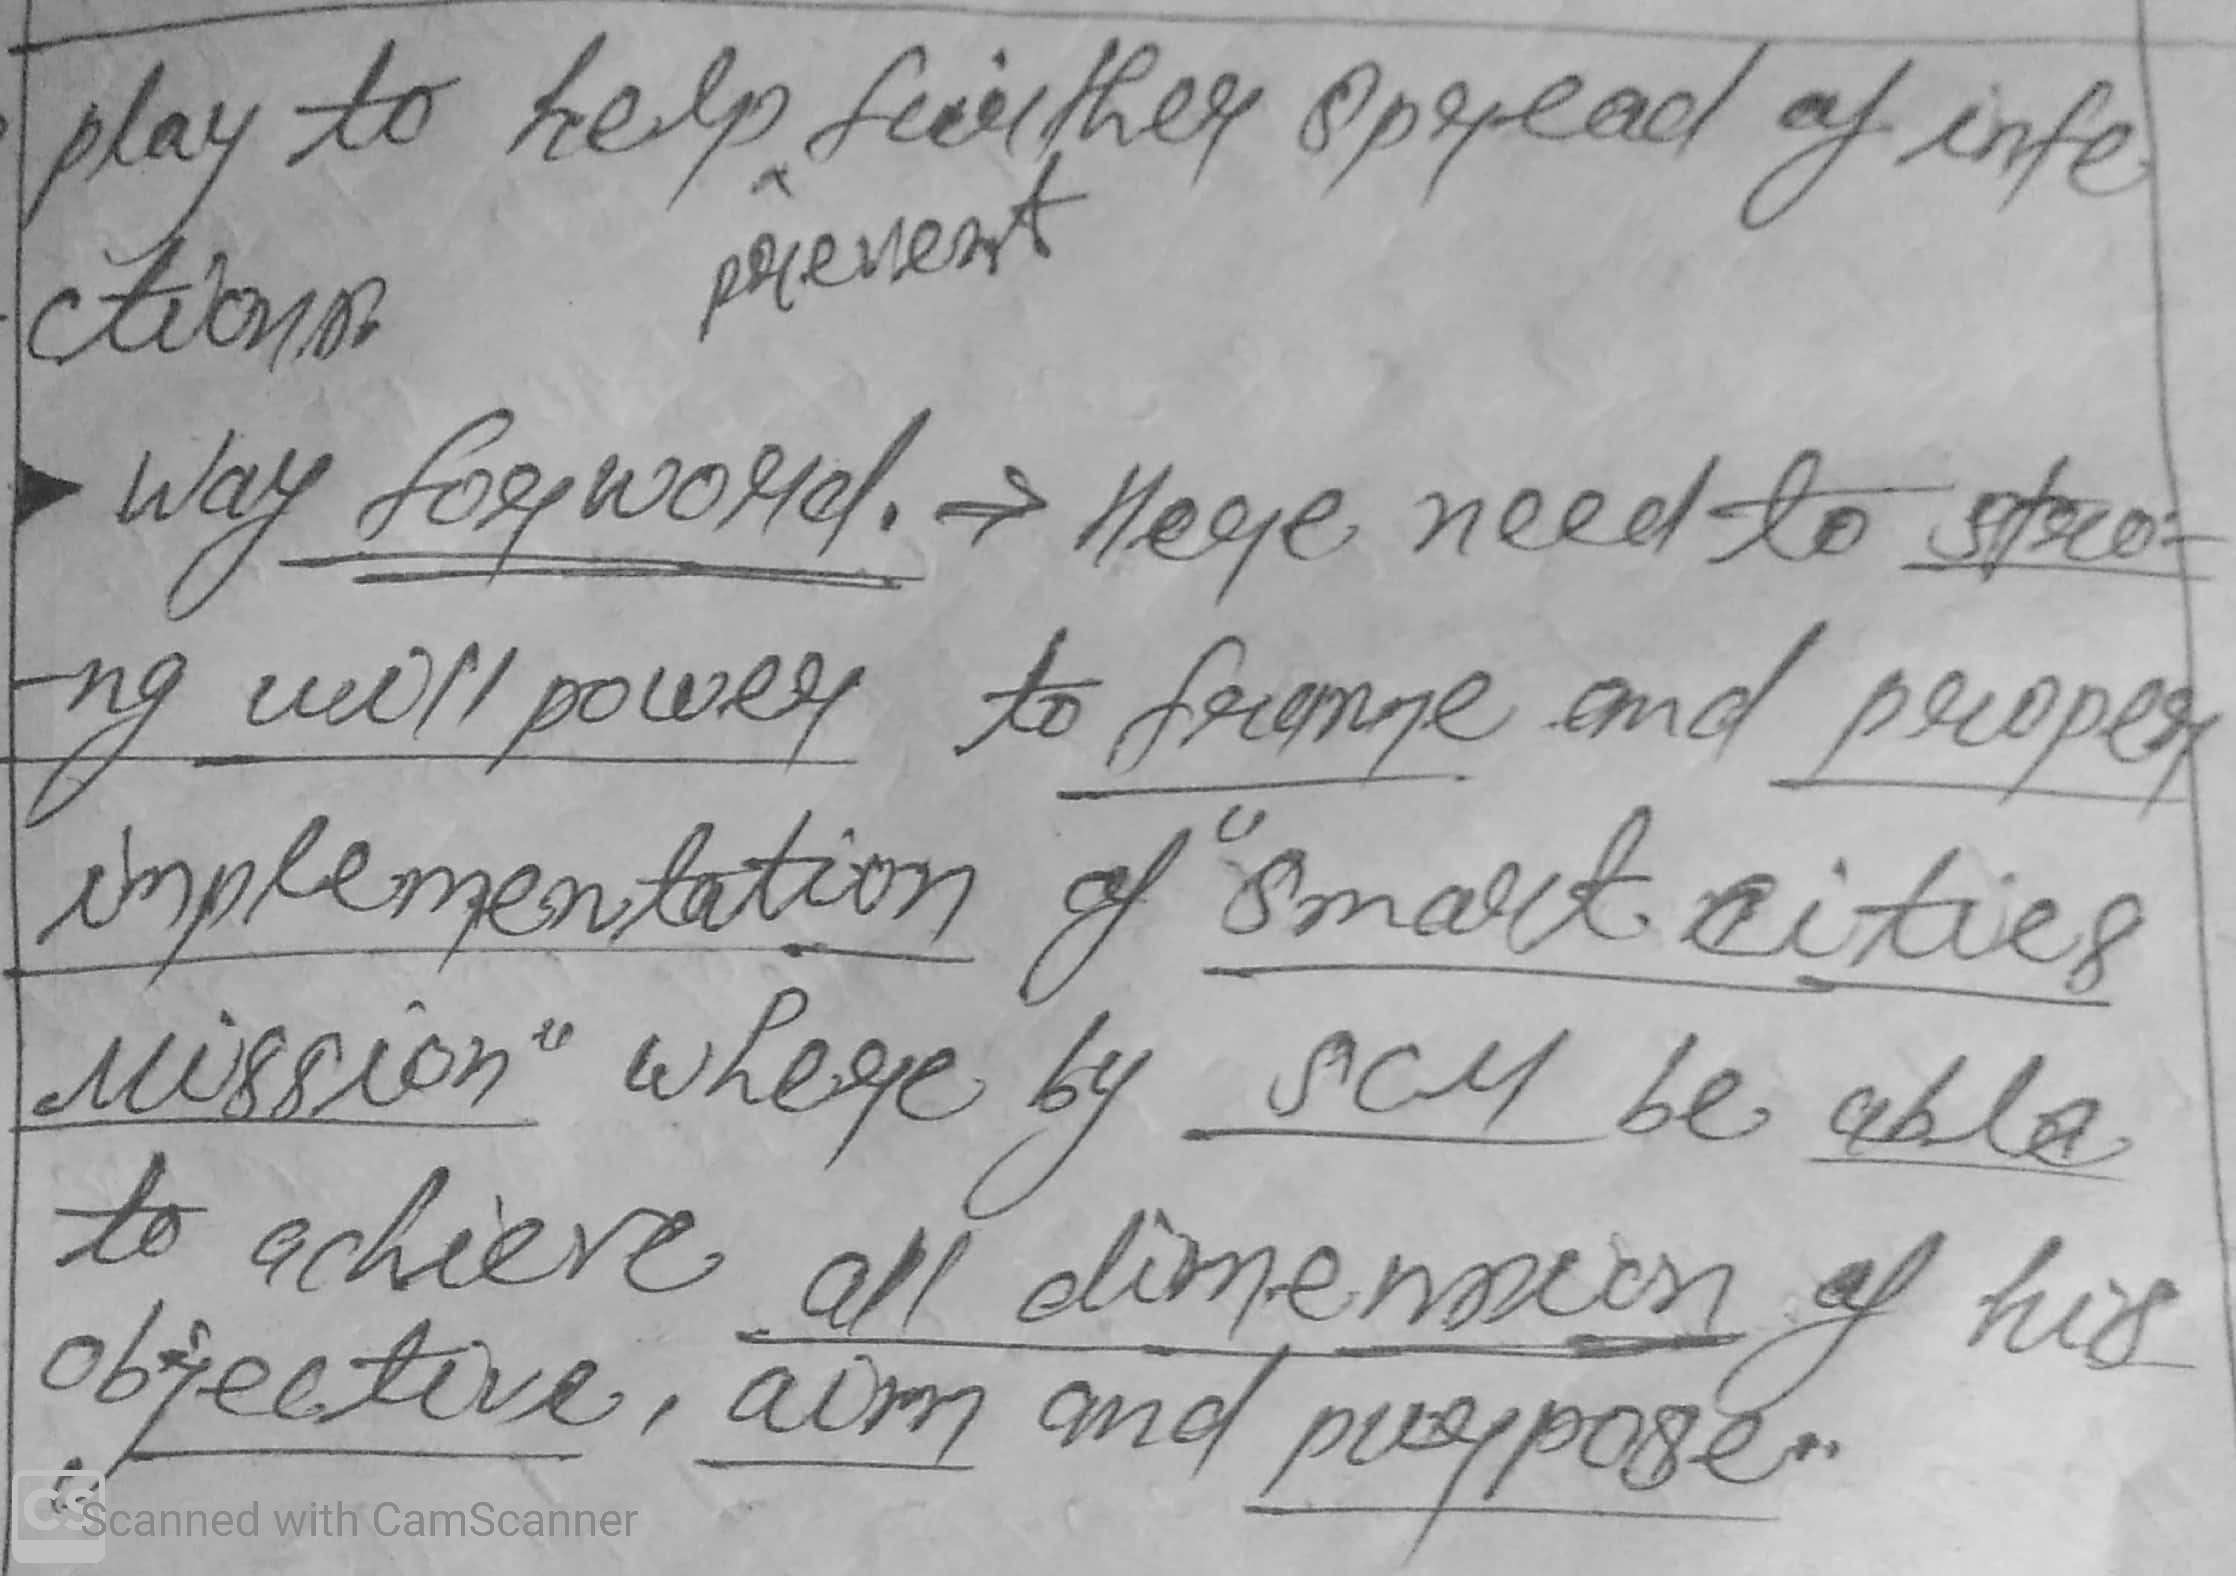 play to help further spread of infe
prevent
ctions.
Way forword. → Here need to stro-
-ng will power to frame and proper
implementation of "Smart cities
Mission" where by SCM be able
to achieve all dimension of his
objective, aim and purpose..
CS Scanned with CamScanner